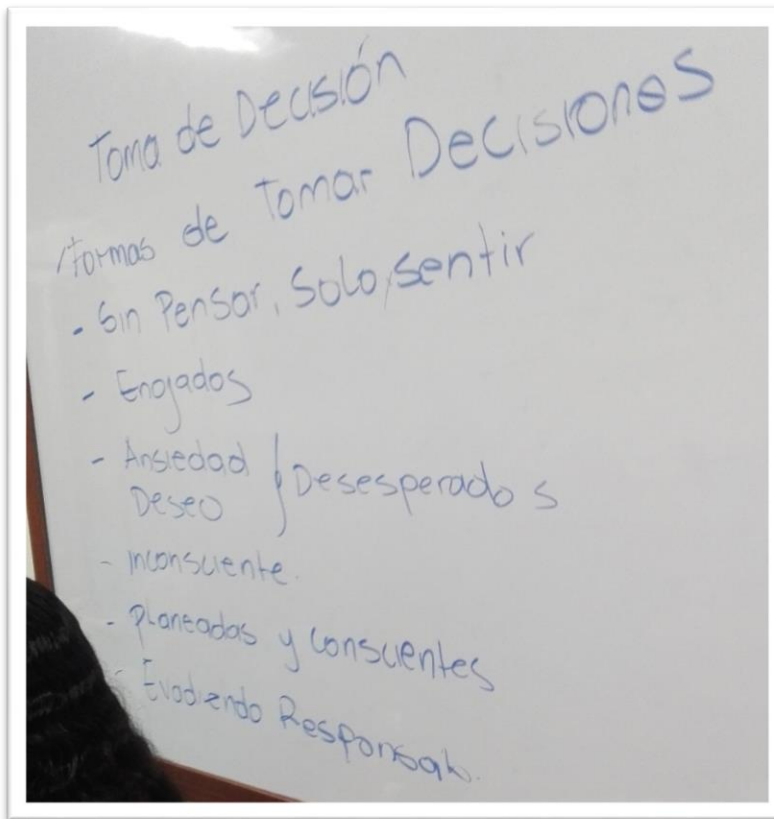 Toma de Decisión
Formas de Tomar Decisiones
- Sin Pensar, Solo sentir
- Enojados
- Ansiedad } Desesperados
Deseo
- inconsciente.
- Planeadas y conscientes
- Evadiendo Responsab.